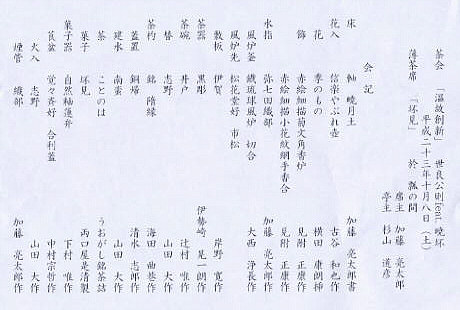 茶会 「温故創新」 世良公則feat.曉坏
平成二十三年十月八日(土)
薄茶席 「坏見」 於 瓢の間
席主 加藤 亮太郎
亭主 杉山 道彦
会記
床 軸 曉月土 加藤 亮太郎書
花入 信楽やぶれ壺 古谷 和也作
花 季のもの 横田 康朗挿
飾 赤絵細描菊文角香炉 見附 正康作
赤絵細描小花紋網手香合 見附 正康作
水指 弥七田織部 加藤 亮太郎作
風炉釜 鐵琉球風炉 切合 大西 浄長作
風炉先 松花堂好 市松
敷板 伊賀 岸野 寛作
茶器 黒彫 伊勢崎 晃一朗作
茶碗 井戸 辻村 唯作
替 志野 山田 大作
茶杓 銘 隋縁 海田 曲巷作
蓋置 清水 志郎作
建水 南蛮 山田 大作
茶 ことのは うおがし銘茶詰
菓子 坏見 両口屋是清製
菓子器 自然釉蓮弁 下村 唯作
莨盆 覚々斎好 合利蓋 中村宗哲作
火入 志野 山田 大作
煙管 織部 加藤 亮太郎作